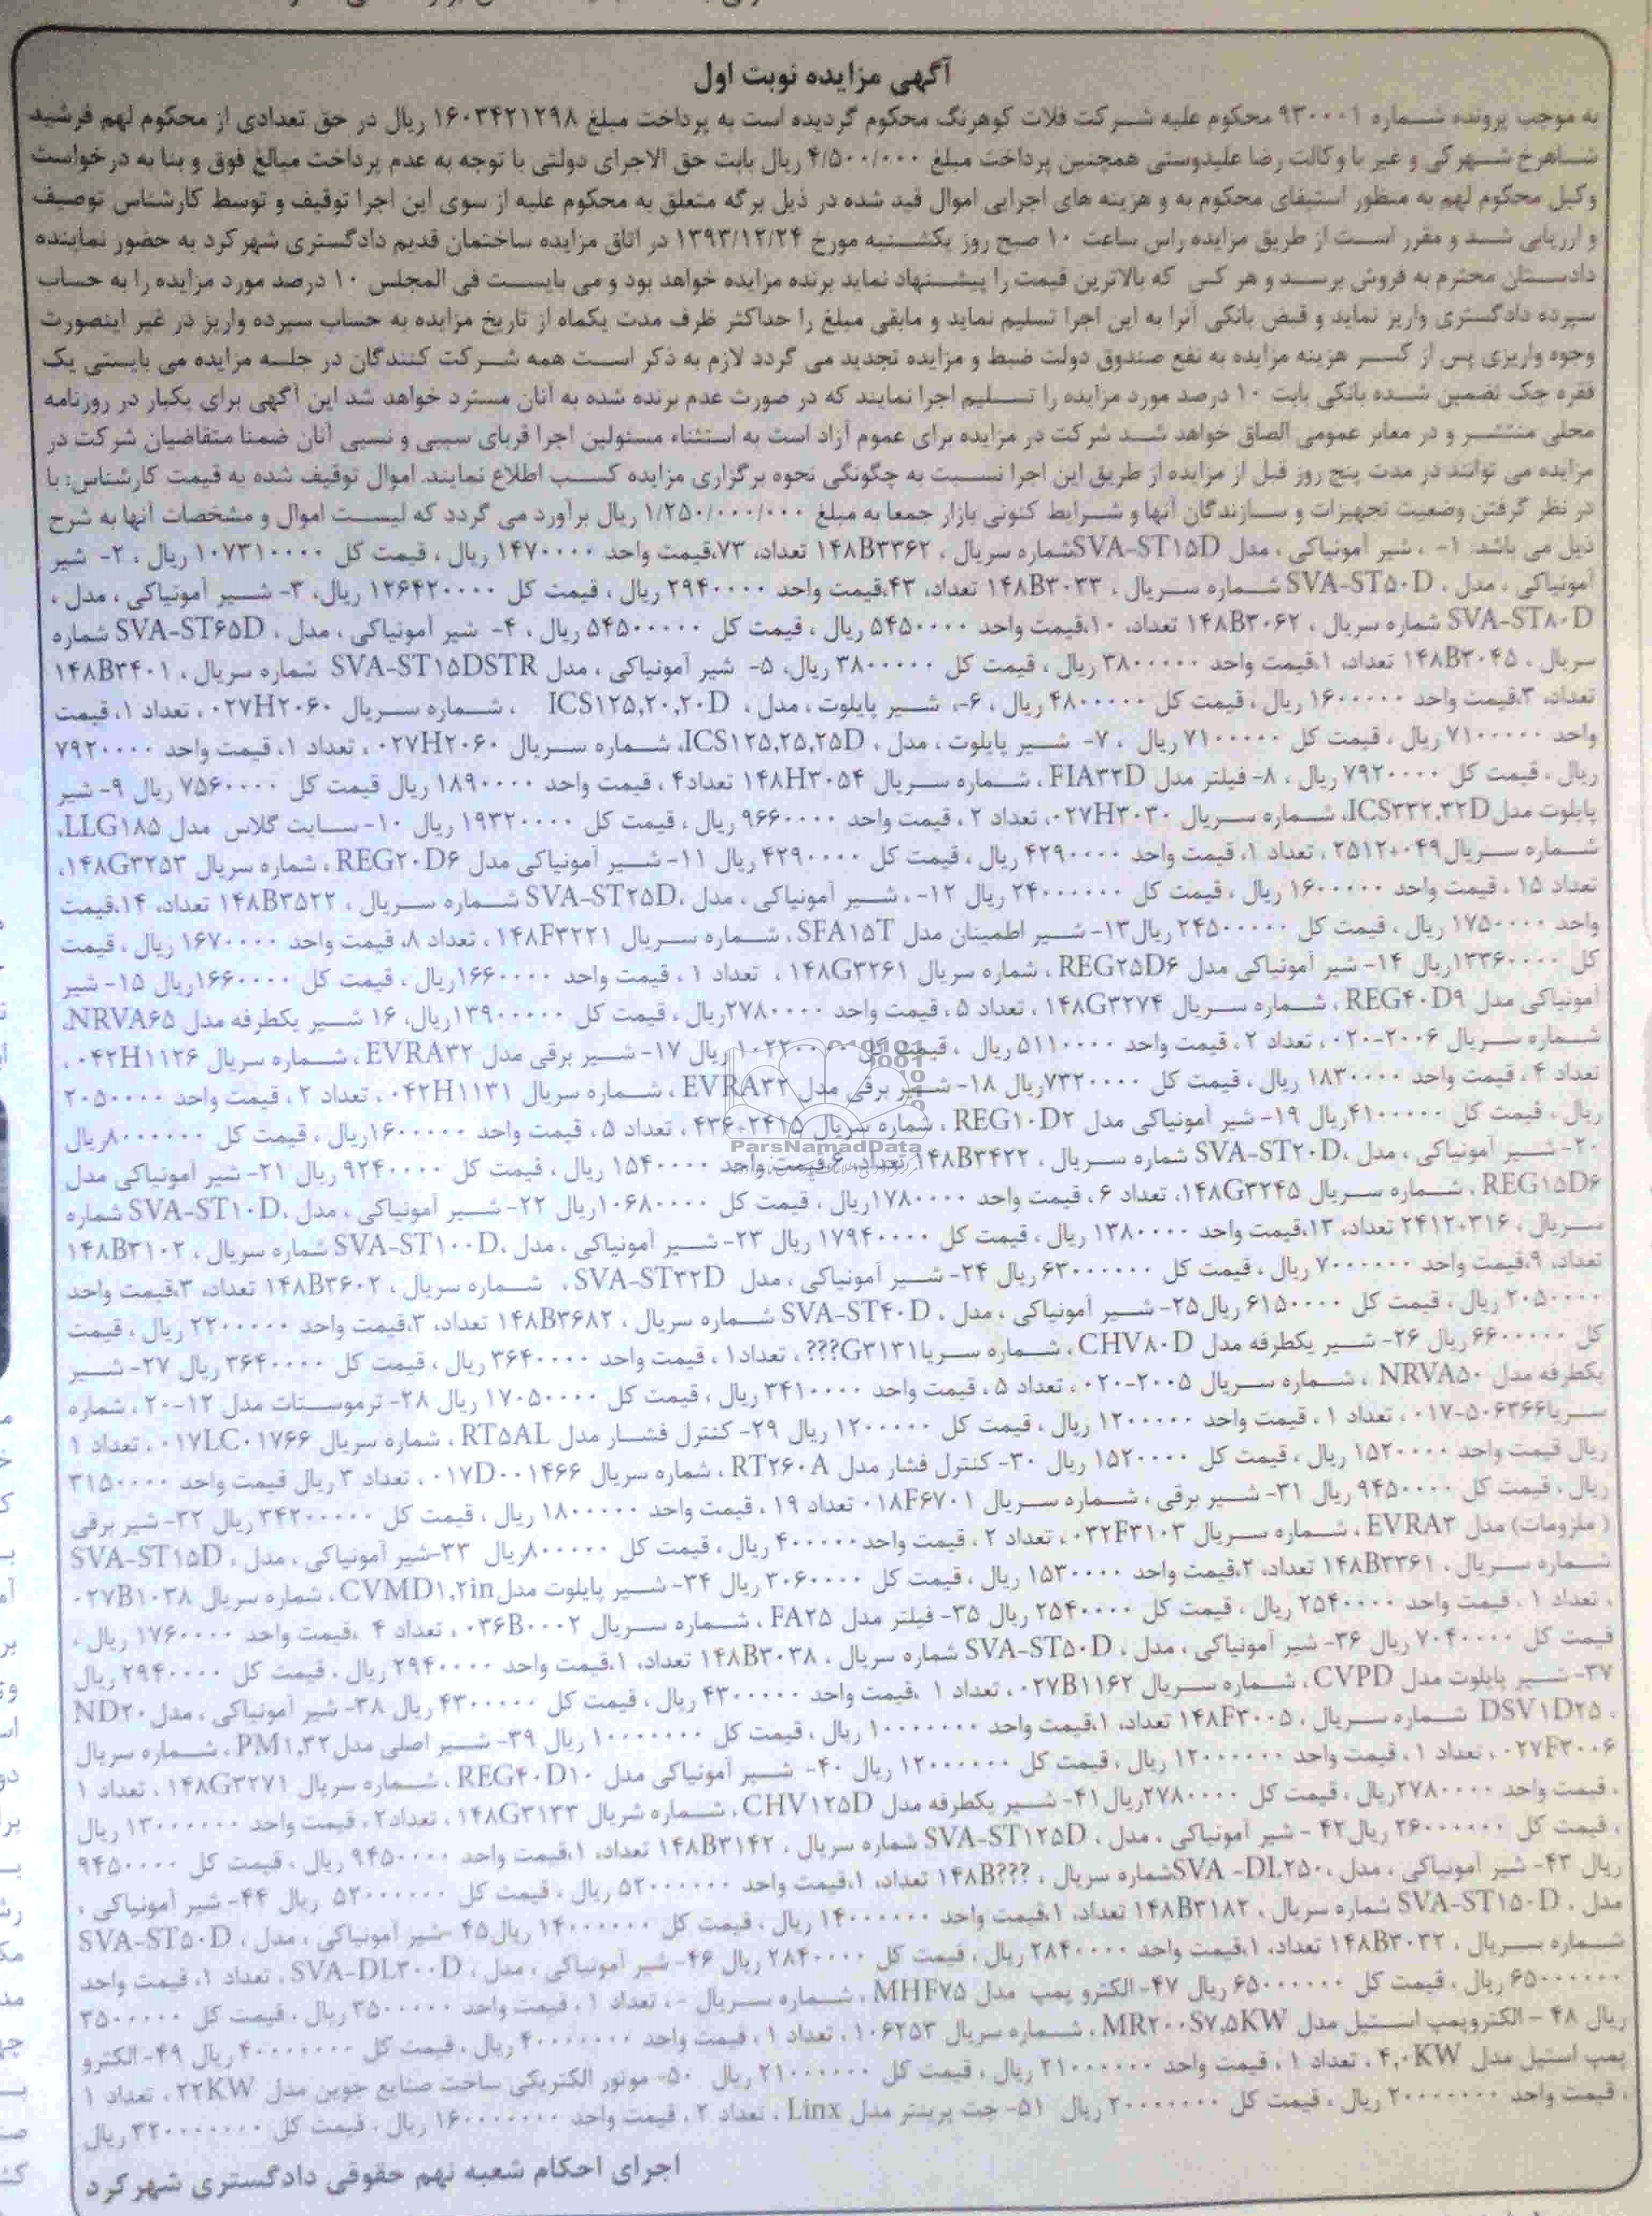 آگهی مزایده نوبت اول
به موجب پرونده شماره ۹۳۰۰۰۱ محکوم علیه شرکت فلات کوهرنگ محکوم گردیده است به پرداخت مبلغ ۱۶۰۳۴۲۱۲۹۸ ریال در حق تعدادی از محکوم لهم فرشید
شاهرخ شهرکی و غیر با وکالت رضا علیدوستی همچنین پرداخت مبلغ ۴/۵۰۰/۰۰۰ ریال بابت حق الاجرای دولتی با توجه به عدم پرداخت مبالغ فوق و بنا به درخواست
وکیل محکوم لهم به منظور استیفای محکوم به و هزینه های اجرایی اموال قید شده در ذیل برگه متعلق به محکوم علیه از سوی این اجرا توقیف و توسط کارشناس توصیف
و ارزیابی شد و مقرر است از طریق مزایده راس ساعت ۱۰ صبح روز یکشنبه مورخ ۱۳۹۳/۱۲/۲۴ در اتاق مزایده ساختمان قدیم دادگستری شهرکرد به حضور نماینده
دادستان محترم به فروش برسد و هر کس که بالاترین قیمت را پیشنهاد نماید برنده مزایده خواهد بود و می بایست فی المجلس ۱۰ درصد مورد مزایده را به حساب
سپرده دادگستری واریز نماید و قبض بانکی آنرا به این اجرا تسلیم نماید و مابقی مبلغ را حداکثر ظرف مدت یکماه از تاریخ مزایده به حساب سپرده واریز در غیر اینصورت
وجوه واریزی پس از کسر هزینه مزایده به نفع صندوق دولت ضبط و مزایده تجدید می گردد لازم به ذکر است همه شرکت کنندگان در جلسه مزایده می بایستی یک
فقره چک تضمین شده بانکی بابت ۱۰ درصد مورد مزایده را تسلیم اجرا نمایند که در صورت عدم برنده شده به آنان مسترد خواهد شد این آگهی برای یکبار در روزنامه
محلی منتشر و در معابر عمومی الصاق خواهد شد شرکت در مزایده برای عموم آزاد است به استثناء مسئولین اجرا قربای سببی و نسبی آنان ضمنا متقاضیان شرکت در
مزایده می توانند در مدت پنج روز قبل از مزایده از طریق این اجرا نسبت به چگونگی نحوه برگزاری مزایده کسب اطلاع نمایند. اموال توقیف شده به قیمت کارشناس: با
در نظر گرفتن وضعیت تجهیزات و سازندگان آنها و شرایط کنونی بازار جمعا به مبلغ ۱/۲۵۰/۰۰۰/۰۰۰ ریال برآورد می گردد که لیست اموال و مشخصات آنها به شرح
ذیل می باشد: ۱- ، شیر آمونیاکی ، مدل SVA-ST۱۵D شماره سریال ، ۱۴۸B۳۳۶۲ تعداد، ۷۳،قیمت واحد ۱۴۷۰۰۰۰ ریال ، قیمت کل ۱۰۷۳۱۰۰۰۰ ریال ، ۲- شیر
آمونیاکی ، مدل ، SVA-ST۵۰D شماره سریال ، ۱۴۸B۳۰۳۳ تعداد، ۴۳،قیمت واحد ۲۹۴۰۰۰۰ ریال ، قیمت کل ۱۲۶۴۲۰۰۰۰ ریال، ۳- شیر آمونیاکی ، مدل ،
SVA-ST۸۰D شماره سریال ، ۱۴۸B۳۰۶۲ تعداد، ۱۰،قیمت واحد ۵۴۵۰۰۰۰ ریال ، قیمت کل ۵۴۵۰۰۰۰۰ ریال ، ۴- شیر آمونیاکی ، مدل ، SVA-ST۶۵D شماره
سریال ، ۱۴۸B۳۰۴۵ تعداد، ۱،قیمت واحد ۳۸۰۰۰۰۰ ریال ، قیمت کل ۳۸۰۰۰۰۰ ریال، ۵- شیر آمونیاکی ، مدل SVA-ST۱۵DSTR شماره سریال ، ۱۴۸B۳۴۰۱
تعداد، ۳،قیمت واحد ۱۶۰۰۰۰۰ ریال ، قیمت کل ۴۸۰۰۰۰۰ ریال ، ۶-، شیر پایلوت ، مدل ، ICS۱۲۵,۲۰,۲۰D ، شماره سریال ۰۲۷H۲۰۶۰ ، تعداد ۱، قیمت
واحد ۷۱۰۰۰۰۰ ریال ، قیمت کل ۷۱۰۰۰۰۰ ریال ، ۷- شیر پایلوت ، مدل ، ICS۱۲۵,۲۵,۲۵D، شماره سریال ۰۲۷H۲۰۶۰ ، تعداد ۱، قیمت واحد ۷۹۲۰۰۰۰
ریال ، قیمت کل ۷۹۲۰۰۰۰ ریال ، ۸- فیلتر مدل FIA۳۲D ، شماره سریال ۱۴۸H۳۰۵۴ تعداد۴ ، قیمت واحد ۱۸۹۰۰۰۰ ریال قیمت کل ۷۵۶۰۰۰۰ ریال ۹- شیر
پایلوت مدل ICS۳۳۲,۳۲D، شماره سریال ۰۲۷H۳۰۳۰، تعداد ۲ ، قیمت واحد ۹۶۶۰۰۰۰ ریال ، قیمت کل ۱۹۳۲۰۰۰۰ ریال ۱۰- سایت گلاس مدل LLG۱۸۵،
شماره سریال۲۵۱۲+۰۴۹ ، تعداد ۱، قیمت واحد ۴۲۹۰۰۰۰ ریال ، قیمت کل ۴۲۹۰۰۰۰ ریال ۱۱- شیر آمونیاکی مدل REG۲۰D۶ ، شماره سریال ۱۴۸G۳۲۵۳،
تعداد ۱۵ ، قیمت واحد ۱۶۰۰۰۰۰ ریال ، قیمت کل ۲۴۰۰۰۰۰۰ ریال ۱۲- ، شیر آمونیاکی ، مدل ،SVA-ST۲۵D شماره سریال ، ۱۴۸B۳۵۲۲ تعداد، ۱۴،قیمت
واحد ۱۷۵۰۰۰۰ ریال ، قیمت کل ۲۴۵۰۰۰۰۰ ریال۱۳- شیر اطمینان مدل SFA۱۵T ، شماره سریال ۱۴۸F۳۲۲۱ ، تعداد ۸، قیمت واحد ۱۶۷۰۰۰۰ ریال ، قیمت
کل ۱۳۳۶۰۰۰۰ریال ۱۴- شیر آمونیاکی مدل REG۲۵D۶ ، شماره سریال ۱۴۸G۳۲۶۱ ، تعداد ۱ ، قیمت واحد ۱۶۶۰۰۰۰ریال ، قیمت کل ۱۶۶۰۰۰۰ریال ۱۵- شیر
آمونیاکی مدل REG۴۰D۹ ، شماره سریال ۱۴۸G۳۲۷۴ ، تعداد ۵ ، قیمت واحد ۲۷۸۰۰۰۰ریال ، قیمت کل ۱۳۹۰۰۰۰۰ریال، ۱۶ شیر یکطرفه مدل NRVA۶۵،
شماره سریال ۲۰۰۶-۰۲۰ ، تعداد ۲ ، قیمت واحد ۵۱۱۰۰۰۰ ریال ، قیمت کل ۱۰۲۲۰۰۰۰ ریال ۱۷- شیر برقی مدل EVRA۳۲ ، شماره سریال ۰۴۲H۱۱۲۶ ،
تعداد ۴ ، قیمت واحد ۱۸۳۰۰۰۰ ریال ، قیمت کل ۷۳۲۰۰۰۰ریال ۱۸- شیر برقی مدل EVRA۳۲ ، شماره سریال ۰۴۲H۱۱۳۱ ، تعداد ۲ ، قیمت واحد ۲۰۵۰۰۰۰
ریال ، قیمت کل ۴۱۰۰۰۰۰ریال ۱۹- شیر آمونیاکی مدل REG۱۰D۲ ، شماره سریال ۲۴۱۵-۴۳۶ ، تعداد ۵، قیمت واحد ۱۶۰۰۰۰۰ریال ، قیمت کل ۸۰۰۰۰۰۰ریال
ParsNamadData
۲۰- شیر آمونیاکی ، مدل ،SVA-ST۲۰D شماره سریال ، ۱۴۸B۳۴۲۲ تعداد، ۶،قیمت واحد ۱۵۴۰۰۰۰ ریال ، قیمت کل ۹۲۴۰۰۰۰ ریال ۲۱- شیر آمونیاکی مدل
REG۱۵D۶ ، شماره سریال ۱۴۸G۳۲۴۵، تعداد ۶ ، قیمت واحد ۱۷۸۰۰۰۰ریال ، قیمت کل ۱۰۶۸۰۰۰۰ریال ۲۲- شیر آمونیاکی ، مدل ،SVA-ST۱۰D شماره
سریال ، ۲۴۱۲+۳۱۶ تعداد، ۱۳،قیمت واحد ۱۳۸۰۰۰۰ ریال ، قیمت کل ۱۷۹۴۰۰۰۰ ریال ۲۳- شیر آمونیاکی ، مدل ،SVA-ST۱۰۰D شماره سریال ، ۱۴۸B۳۱۰۲
تعداد، ۹،قیمت واحد ۷۰۰۰۰۰۰ ریال ، قیمت کل ۶۳۰۰۰۰۰۰ ریال ۲۴- شیر آمونیاکی ، مدل SVA-ST۳۲D ، شماره سریال ، ۱۴۸B۳۶۰۲ تعداد، ۳،قیمت واحد
۲۰۵۰۰۰۰ ریال ، قیمت کل ۶۱۵۰۰۰۰ ریال۲۵- شیر آمونیاکی ، مدل ، SVA-ST۴۰D شماره سریال ، ۱۴۸B۳۶۸۲ تعداد، ۳،قیمت واحد ۲۲۰۰۰۰۰ ریال ، قیمت
کل ۶۶۰۰۰۰۰ ریال ۲۶- شیر یکطرفه مدل CHV۸۰D ، شماره سریا۱G۳۱۳۱??? ، تعداد۱ ، قیمت واحد ۳۶۴۰۰۰۰ ریال ، قیمت کل ۳۶۴۰۰۰۰ ریال ۲۷- شیر
یکطرفه مدل NRVA۵۰ ، شماره سریال ۲۰۰۵-۰۲۰ ، تعداد ۵ ، قیمت واحد ۳۴۱۰۰۰۰ ریال ، قیمت کل ۱۷۰۵۰۰۰۰ ریال ۲۸- ترموستات مدل ۱۲-۲۰ ، شماره
سریا۵۰۶۳۶۶-۰۱۷ ، تعداد ۱ ، قیمت واحد ۱۲۰۰۰۰۰ ریال ، قیمت کل ۱۲۰۰۰۰۰ ریال ۲۹- کنترل فشار مدل RT۵AL ، شماره سریال ۰۱۷LC۰۱۷۶۶ ، تعداد ۱
ریال قیمت واحد ۱۵۲۰۰۰۰ ریال ، قیمت کل ۱۵۲۰۰۰۰ ریال ۳۰- کنترل فشار مدل RT۲۶۰A ، شماره سریال ۰۱۷D۰۰۱۴۶۶ ، تعداد ۳ ریال قیمت واحد ۳۱۵۰۰۰۰
ریال ، قیمت کل ۹۴۵۰۰۰۰ ریال ۳۱- شیر برقی ، شماره سریال ۰۱۸F۶۷۰۱ تعداد ۱۹ ، قیمت واحد ۱۸۰۰۰۰۰ ریال ، قیمت کل ۳۴۲۰۰۰۰۰ ریال ۳۲- شیر برقی
( ملزومات) مدل EVRA۳ ، شماره سریال ۰۳۲F۳۱۰۳ ، تعداد ۲ ، قیمت واحد۴۰۰۰۰۰ ریال ، قیمت کل ۸۰۰۰۰۰ریال ۳۳-شیر آمونیاکی ، مدل ، SVA-ST۱۵D
شماره سریال ، ۱۴۸B۳۳۶۱ تعداد، ۲،قیمت واحد ۱۵۳۰۰۰۰ ریال ، قیمت کل ۳۰۶۰۰۰۰ ریال ۳۴- شیر پایلوت مدلCVMD۱,۲in ، شماره سریال ۰۲۷B۱۰۳۸
، تعداد ۱ ، قیمت واحد ۲۵۴۰۰۰۰ ریال ، قیمت کل ۲۵۴۰۰۰۰ ریال ۳۵- فیلتر مدل FA۲۵ ، شماره سریال ۰۳۶B۰۰۰۲ ، تعداد ۴ ،قیمت واحد ۱۷۶۰۰۰۰ ریال ،
قیمت کل ۷۰۴۰۰۰۰ ریال ۳۶- شیر آمونیاکی ، مدل ، SVA-ST۵۰D شماره سریال ، ۱۴۸B۳۰۳۸ تعداد، ۱،قیمت واحد ۲۹۴۰۰۰۰ ریال ، قیمت کل ۲۹۴۰۰۰۰ ریال
۳۷- شیر پایلوت مدل CVPD ، شماره سریال ۰۲۷B۱۱۶۲ ، تعداد ۱ ،قیمت واحد ۴۳۰۰۰۰۰ ریال ، قیمت کل ۴۳۰۰۰۰۰ ریال ۳۸- شیر آمونیاکی ، مدل ND۲۰
، DSV۱D۲۵ شماره سریال ، ۱۴۸F۳۰۰۵ تعداد، ۱،قیمت واحد ۱۰۰۰۰۰۰۰ ریال ، قیمت کل ۱۰۰۰۰۰۰۰ ریال ۳۹- شیر اصلی مدلPM۱,۳۲ ، شماره سریال
۰۲۷F۳۰۰۶ ، تعداد ۱ ، قیمت واحد ۱۲۰۰۰۰۰۰ ریال ، قیمت کل ۱۲۰۰۰۰۰۰ ریال ۴۰- شیر آمونیاکی مدل REG۴۰D۱۰ ، شماره سریال ۱۴۸G۳۲۷۱ ، تعداد ۱
، قیمت واحد ۲۷۸۰۰۰۰ریال ، قیمت کل ۲۷۸۰۰۰۰ریال۴۱- شیر یکطرفه مدل CHV۱۲۵D ، شماره شریال ۱۴۸G۳۱۳۳ ، تعداد۲ ، قیمت واحد ۱۳۰۰۰۰۰۰ ریال
، قیمت کل ۲۶۰۰۰۰۰۰ ریال۴۲ - شیر آمونیاکی ، مدل ، SVA-ST۱۲۵D شماره سریال ، ۱۴۸B۳۱۴۲ تعداد، ۱،قیمت واحد ۹۴۵۰۰۰۰ ریال ، قیمت کل ۹۴۵۰۰۰۰
ریال ۴۳- شیر آمونیاکی ، مدل ،SVA -DL۲۵۰ شماره سریال ، ???۱۴۸B تعداد، ۱،قیمت واحد ۵۲۰۰۰۰۰۰ ریال ، قیمت کل ۵۲۰۰۰۰۰۰ ریال ۴۴- شیر آمونیاکی ،
مدل ، SVA-ST۱۵۰D شماره سریال ، ۱۴۸B۳۱۸۲ تعداد، ۱،قیمت واحد ۱۴۰۰۰۰۰۰ ریال ، قیمت کل ۱۴۰۰۰۰۰۰ ریال۴۵ -شیر آمونیاکی ، مدل ، SVA-ST۵۰D
شماره سریال ، ۱۴۸B۳۰۳۲ تعداد، ۱،قیمت واحد ۲۸۴۰۰۰۰ ریال ، قیمت کل ۲۸۴۰۰۰۰ ریال ۴۶- شیر آمونیاکی ، مدل ، SVA-DL۳۰۰D ، تعداد ۱، قیمت واحد
۶۵۰۰۰۰۰۰ ریال ، قیمت کل ۶۵۰۰۰۰۰۰ ریال ۴۷- الکترو پمپ مدل MHF۷۵ ، شماره سریال - ، تعداد ۱ ، قیمت واحد ۳۵۰۰۰۰۰ ریال ، قیمت کل ۳۵۰۰۰۰۰
ریال ۴۸ - الکتروپمپ استیل مدل MR۲۰۰S۷,۵KW ، شماره سریال ۱۰۶۲۵۳ ، تعداد ۱ ، قیمت واحد ۴۰۰۰۰۰۰۰ ریال ، قیمت کل ۴۰۰۰۰۰۰۰ ریال ۴۹- الکترو
پمپ استیل مدل ۴,۰KW ، تعداد ۱ ، قیمت واحد ۲۱۰۰۰۰۰۰ ریال ، قیمت کل ۲۱۰۰۰۰۰۰ ریال ۵۰- موتور الکتریکی ساخت صنایع جوین مدل ۲۲KW ، تعداد ۱
، قیمت واحد ۲۰۰۰۰۰۰۰ ریال ، قیمت کل ۲۰۰۰۰۰۰۰ ریال ۵۱- جت پرینتر مدل Linx ، تعداد ۲ ، قیمت واحد ۱۶۰۰۰۰۰۰۰ ریال ، قیمت کل ۳۲۰۰۰۰۰۰۰ ریال
اجرای احکام شعبه نهم حقوقی دادگستری شهرکرد